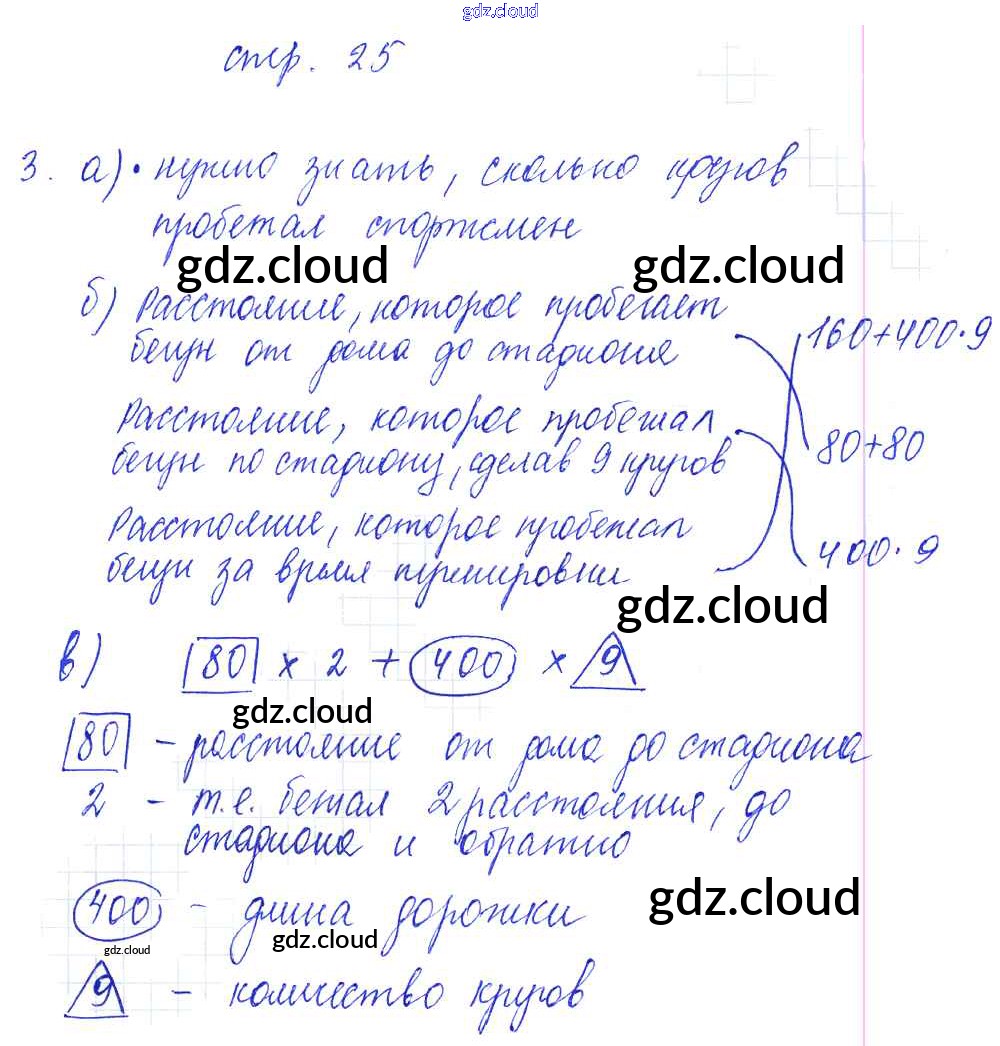 gdz.cloud
стр. 25
3. а) • нужно знать, сколько кругов
пробежал спортсмен
gdz.cloud gdz.cloud
б) Расстояние, которое пробегает
бегун от дома до стадиона
160+400·9
Расстояние, которое пробежал
бегун по стадиону, сделав 9 кругов
80+80
Расстояние, которое пробежал
бегун за время тренировки
400·9
gdz.cloud
в) 80 × 2 + 400 × 9
gdz.cloud
80 – расстояние от дома до стадиона
2 – т.е. бежал 2 расстояния, до
стадиона и обратно
gdz.cloud
400 – длина дорожки
gdz.cloud
gdz.cloud
9 – количество кругов